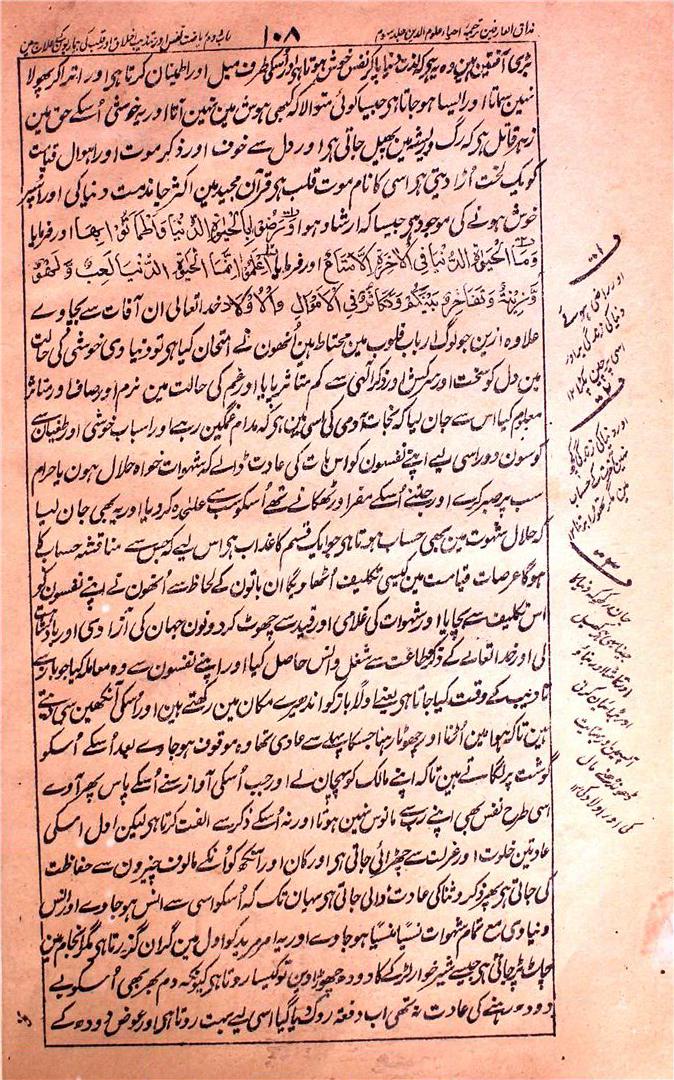 مذاق العارفین ترجمہ احیاء علوم الدین جلد سوم
۱۰۸
باب دوم ریاضت نفس اور تہذیب اخلاق اور قلب کی بیماریوں کے علاج مین
بڑی آفتین ہین وہ یہ کہ لذت دنیا پاکر نفس خوش ہوتا ہی اور اُسکی طرف میل اور اطمینان کرتا ہی اور اتراکر پھولا
نہین سماتا اور ایسا ہوجاتا ہی جیسا کوئی متوالا کہ کبھی ہوش مین نہین آتا اور یہ خوشی اُسکے حق مین
زہر قاتل ہی کہ رگ و ریشہ مین پھیل جاتی ہی اور دل سے خوف اور ذکر موت اور اہوال قیامت
کو یک لخت اُڑا دیتی ہی اسی کا نام موت قلب ہی قرآن مجید مین اکثر جا مذمت دنیا کی اور اُسپر
خوش ہونے کی موجود ہی جیسا کہ ارشاد ہوا وَرَضُوا بِالْحَیٰوةِ الدُّنْیَا وَاطْمَاَنُّوا بِهَا اور فرمایا
وَمَا الْحَیٰوةُ الدُّنْیَا فِی الْاٰخِرَةِ اِلَّا مَتَاعٌ اور فرمایا اِعْلَمُوْا اَنَّمَا الْحَیٰوةُ الدُّنْیَا لَعِبٌ وَّلَهْوٌ
وَّزِیْنَةٌ وَّتَفَاخُرٌ بَیْنَكُمْ وَتَكَاثُرٌ فِی الْاَمْوَالِ وَالْاَوْلَادِ خداے تعالی ان آفات سے بچاوے
علاوہ ازین جو لوگ ارباب قلوب مین محتاط ہین اُنھون نے امتحان کیا ہی تو دنیاوی خوشی کی حالت
مین دل کو سخت اور سرکش اور ذکر الٰہی سے کم متاثر پایا اور غم کی حالت مین نرم اور صاف اور متاثر
معلوم کیا اس سے جان لیا کہ نجات آدمی کی اسی مین ہی کہ مدام غمگین رہے اور اسباب خوشی اور طغیان سے
کوسون دور اسی لیے اپنے نفسون کو اس بات کی عادت ڈالے کہ شہوات خواہ حلال ہون یا حرام
سب پر صبر کرے اور جتنے اُسکے مفر اور ٹھکانے تھے اُسکو سب سے علٰحدہ کردیا اور یہ بھی جان لیا
کہ حلال شہوت مین بھی حساب ہوتا ہی جو ایک قسم کا عذاب ہی اس لیے کہ جس سے مناقشہ حساب کا
ہوگا عرصات قیامت مین کیسی تکلیف اُٹھاویگا ان باتون کے لحاظ سے اُنھون نے اپنے نفسون کو
اس تکلیف سے بچایا اور شہوات کی غلامی اور قید سے چھوٹ کر دونون جہان کی آزادی اور بادشاہت
لی اور خداے تعالے کے ذکر و طاعت سے شغل و انس حاصل کیا اور اپنے نفسون سے وہ معاملہ کیا جو باز سے
تادیب کے وقت کیا جاتا ہی یعنے اولًا باز کو اندھیرے مکان مین رکھتے ہین اور اُسکی آنکھین سی دیتے
ہین تاکہ ہوا مین اُڑنا اور چھوٹا رہنا جسکا پہلے سے عادی تھا وہ موقوف ہوجاوے بعد اُسکے اُسکو
گوشت پر لگاتے ہین تاکہ اپنے مالک کو پہچان لے اور جب اُسکی آواز سنے اُسکے پاس پھر آوے
اسی طرح نفس بھی اپنے رب سے مانوس نہین ہوتا اور نہ اُسکے ذکر سے الفت کرتا ہی لیکن اول اسکی
عادتین خلوت اور عزلت سے چھڑائی جاتی ہی اور کان اور آنکھ کو اُنکے مالوف چیزون سے حفاظت
کی جاتی ہی پھر ذکر و ثنا کی عادت ڈالی جاتی ہی یہان تک کہ اُسکو اسی سے انس ہوجاوے اور انس
دنیاوی مع تمام شہوات نسیًا منسیًا ہوجاوے اور یہ امر مرید کو اول مین گران گذرتا ہی مگر انجام مین
چاٹ پڑجاتی ہی جیسے شیرخوار لڑکے کا دودھ چھوڑا دین تو کیسا روتا ہی کیونکہ دم بھر بھی اُسکو بے
دودھ رہنے کی عادت نہ تھی اب دفعۃً روک دیا گیا اسی لیے بہت روتا ہی اور عوض دودھ کے
اور راضی ہوئے
دنیا کی زندگی پر اور
اسی پر چین پکڑا ۱۲
اور دنیا کی زندگی کچھ
نہین آخرت کے حساب
مین مگر تھوڑا برتنا ۱۲
جان رکھو کہ دنیا کا
جینا یہی ہی کھیل
اور تماشا اور بناؤ
اور بڑائیان کرنی
آپسمین اور بہتایت
ڈھونڈھنی مال
کی اور اولاد کی ۱۲